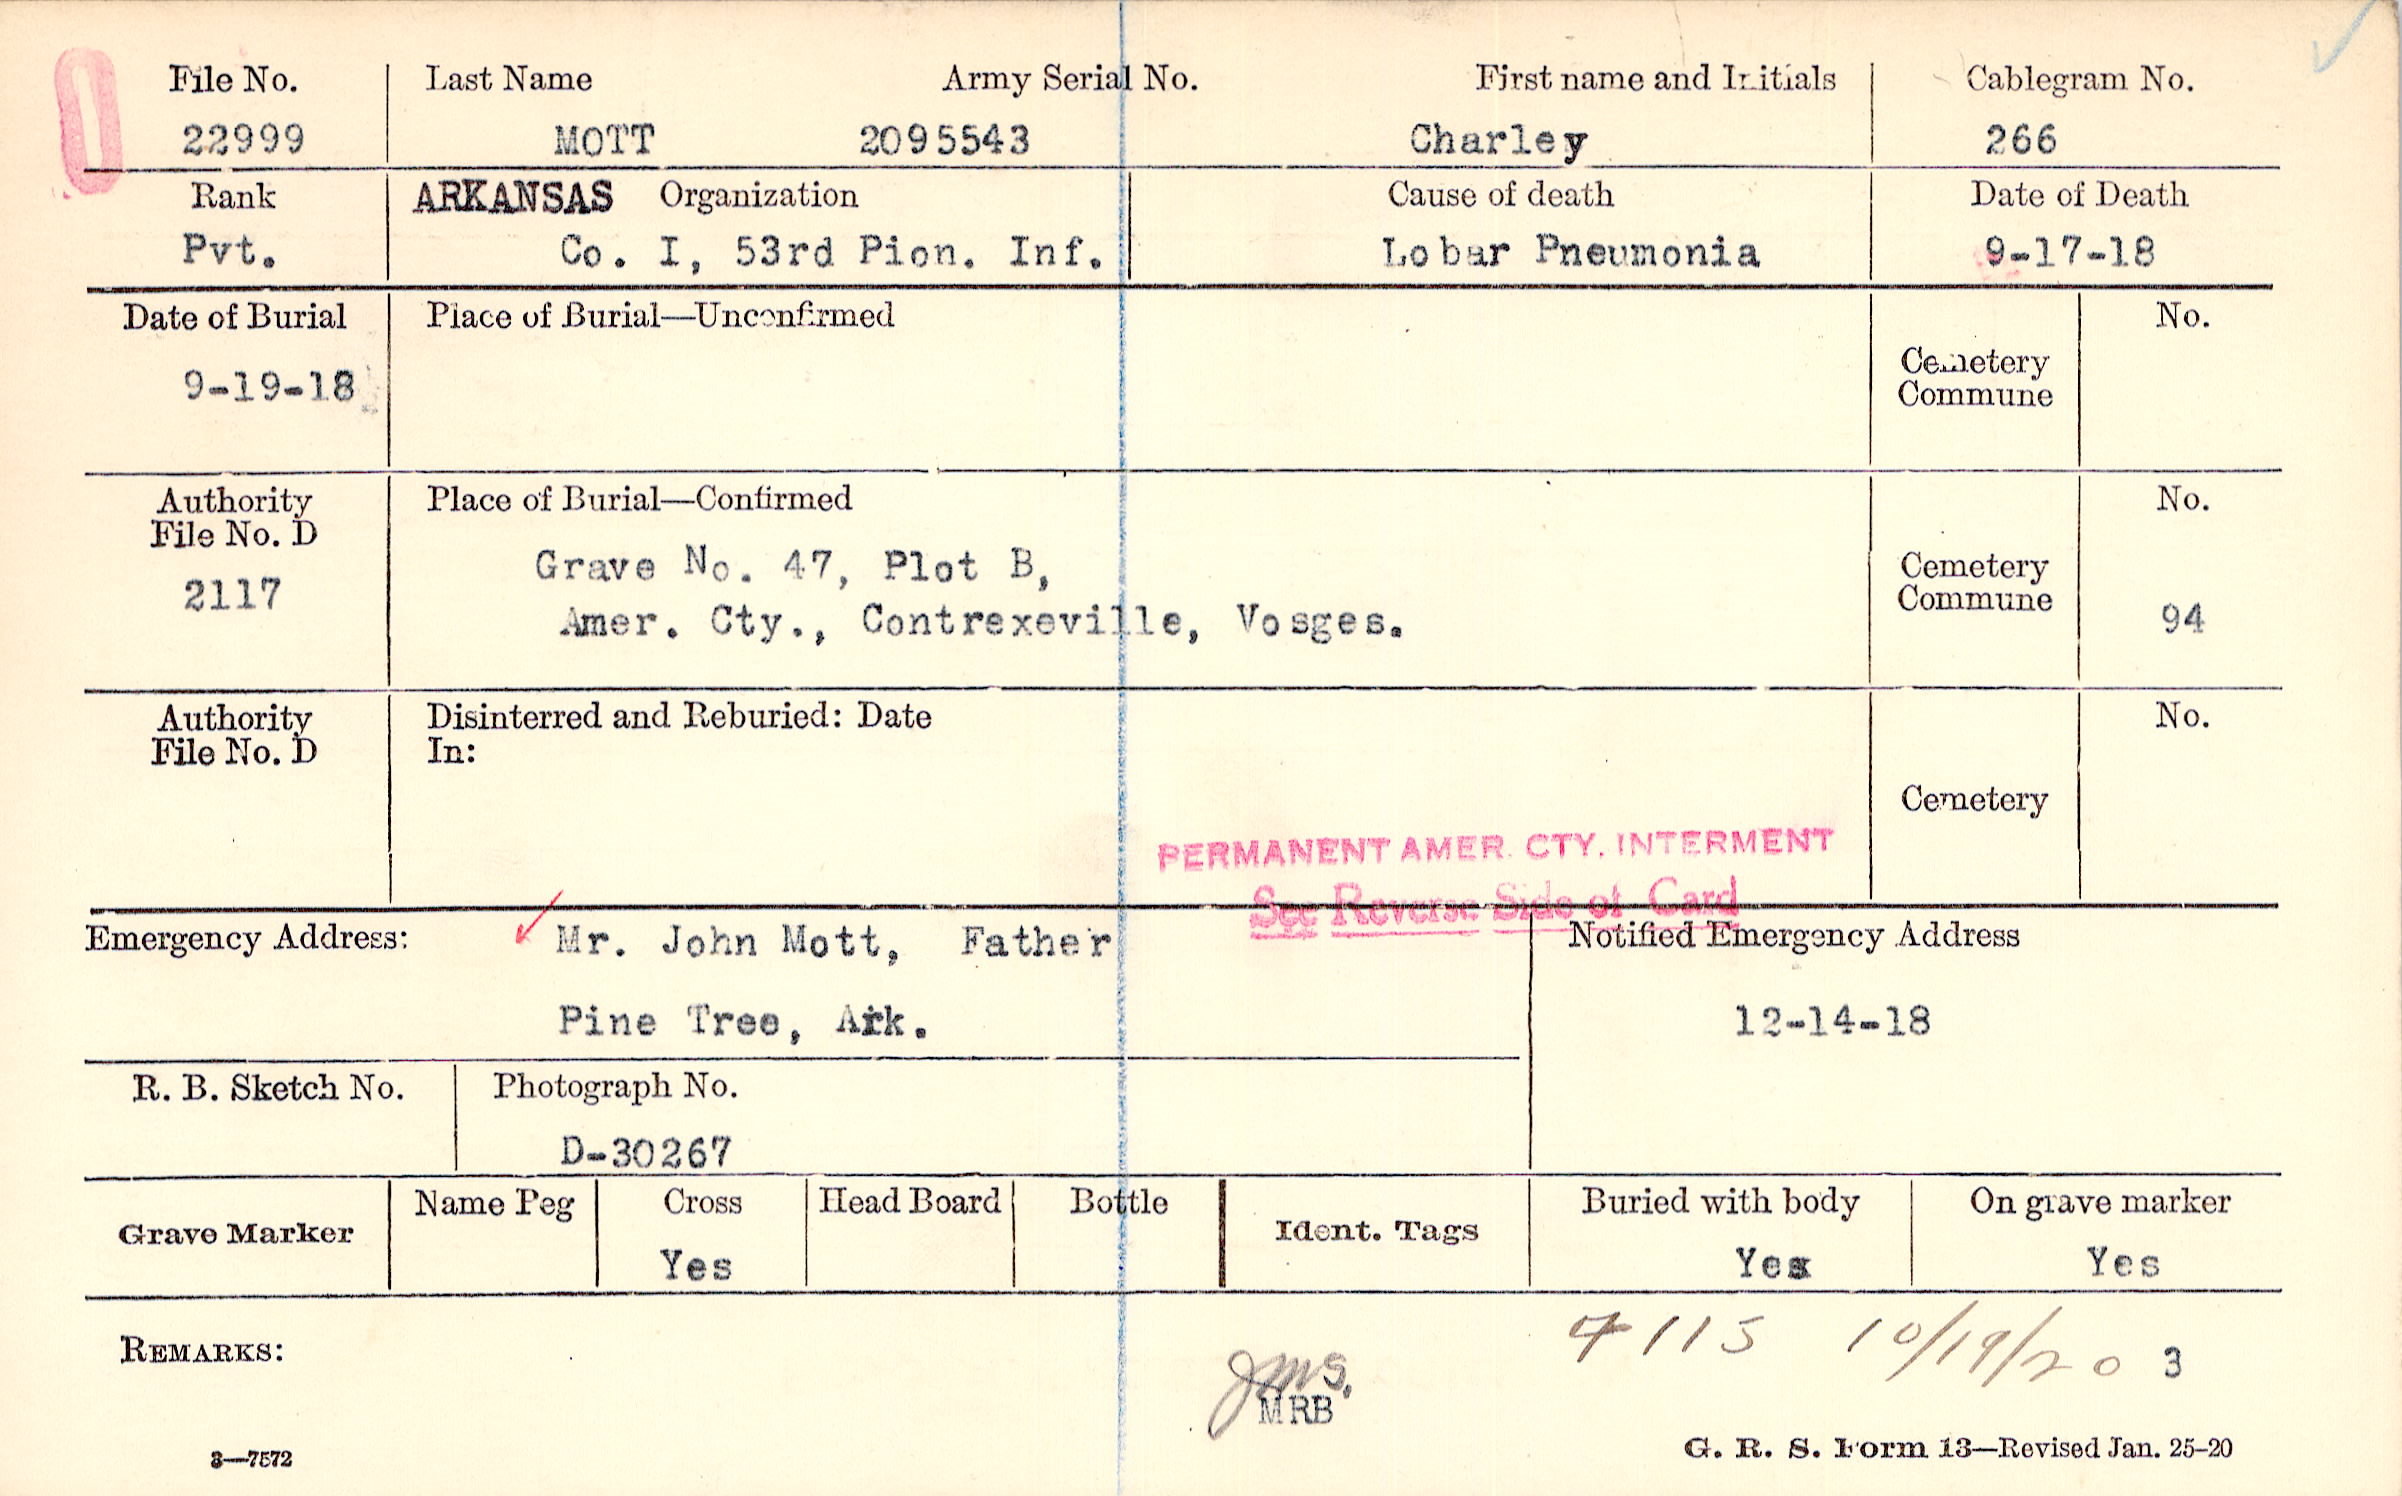 File No. Last Name Army Serial No. First name and Initials Cablegram No.
22999 MOTT 2095543 Charley 266
Rank ARKANSAS Organization Cause of death Date of Death
Pvt. Co. I, 53rd Pion. Inf. Lobar Pneumonia 9-17-18
Date of Burial Place of Burial—Unconfirmed No.
Cemetery
Commune
9-19-18
Authority Place of Burial—Confirmed No.
File No. D
Grave No. 47, Plot B, Cemetery
2117 Commune
Amer. Cty., Contrexeville, Vosges. 94
Authority Disinterred and Reburied: Date No.
File No. D In:
Cemetery
PERMANENT AMER. CTY. INTERMENT
See Reverse Side of Card
Emergency Address: Mr. John Mott, Father Notified Emergency Address
Pine Tree, Ark. 12-14-18
R. B. Sketch No. Photograph No.
D-30267
Grave Marker Name Peg Cross Head Board Bottle Ident. Tags Buried with body On grave marker
Yes Yes Yes
4115 10/19/20 3
REMARKS:
JMS.
MRB
3—7572 G. R. S. Form 13—Revised Jan. 25-20